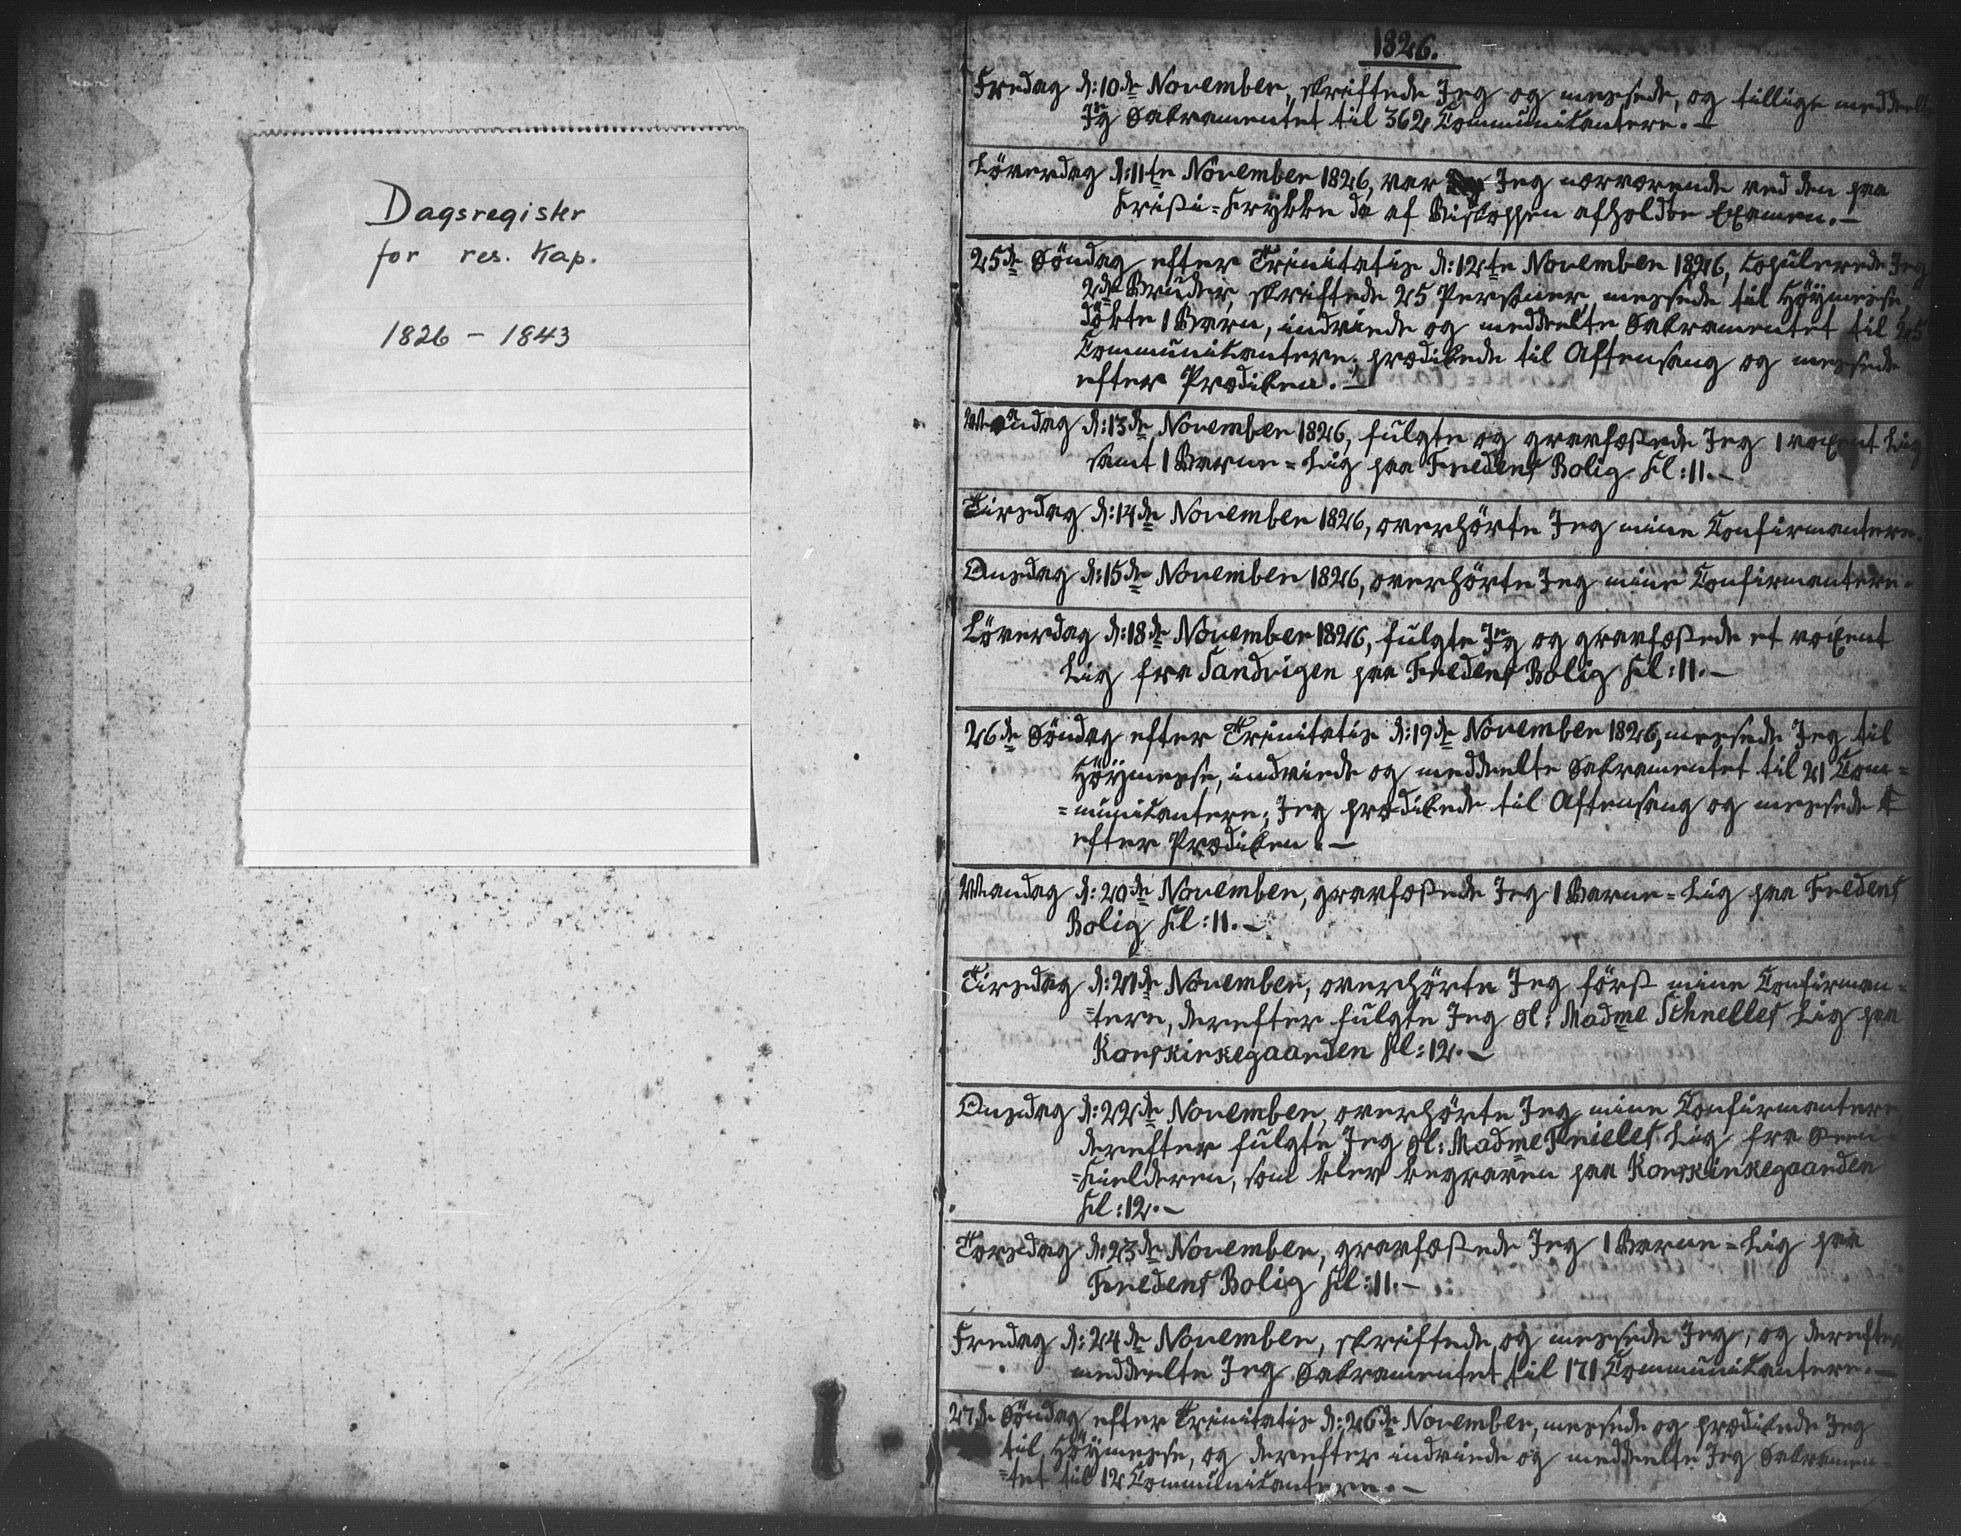 Dagsregister
for res. Kap.
1826 - 1843
1826.
Fredag d: 10de November, skriftede Jeg og messede, og tillige meddeelte
Jeg Sakramentet til 362 Communikantere. -
Löverdag d: 11te November 1826, var Jeg nærværende ved den paa
Kristi-Krybbe da af Biskoppen afholdte Examen. -
25de Söndag efter Trinitatis d: 12te November 1826, Copulerede Jeg
2de Bruder, skriftede 25 Personer, messede til Höymesse,
döbte 1 Barn, indviede og meddeelte Sakramentet til 25
Communikantere; prædikede til Aftensang og messede
efter Prædiken. -
Mandag d: 13de November 1826, fulgte og gravfæstede Jeg 1 voxent Lig
samt 1 Barne=Lig paa Fredens Bolig Kl: 11. -
Tirsdag d: 14de November 1826, overhörte Jeg mine Confirmantere.
Onsdag d: 15de November 1826, overhörte Jeg mine Confirmantere.
Löverdag d: 18de November 1826, fulgte Jeg og gravfæstede et voxent
Lig fra Sandvigen paa Fredens Bolig Kl: 11. -
26de Söndag efter Trinitatis d: 19de November 1826, messede Jeg til
Höymesse, indviede og meddeelte Sakramentet til 21 Com=
=munikantere; Jeg prædikede til Aftensang og messede
efter Prædiken. -
Mandag d: 20de November, gravfæstede Jeg 1 Barne=Lig paa Fredens
Bolig Kl: 11. -
Tirsdag d: 21de November, overhörte Jeg först mine Confirman=
=tere, derefter fulgte Jeg Sl: Madme Schnelles Lig paa
Korskirkegaarden Kl: 12. -
Onsdag d: 22de November, overhörte Jeg mine Confirmantere
derefter fulgte Jeg Sl: Madme Lig fra
som blev begraven paa Korskirkegaarden
Kl: 12. -
Torsdag d: 23de November, gravfæstede Jeg 1 Barne=Lig paa
Fredens Bolig Kl: 11. -
Fredag d: 24de November, skriftede og messede Jeg, og derefter
meddeelte Jeg Sakramentet til 171 Communikantere. -
27de Söndag efter Trinitatis d: 26de November, messede og prædikede Jeg
til Höymesse, og derefter indviede og meddeelte Jeg Sakramen=
=tet til 12 Communikantere. -